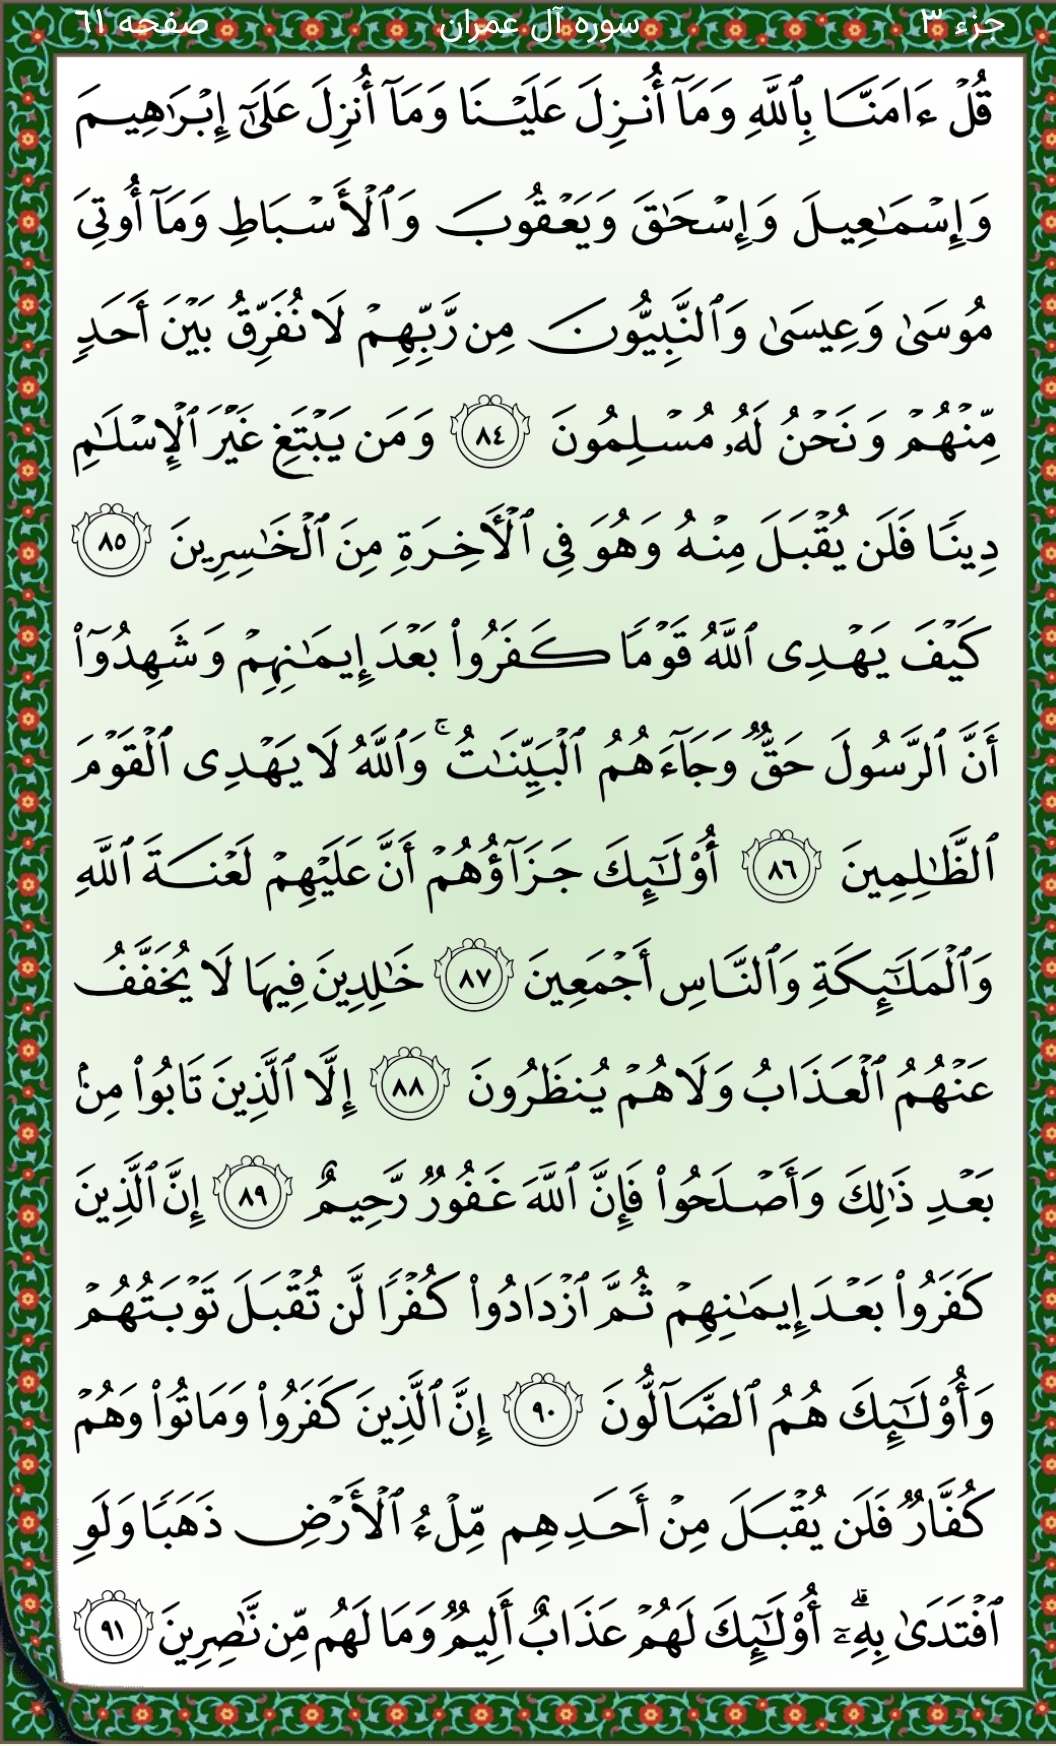 جزء ٣ سوره آل عمران صفحه ٦١
قُلْ ءَامَنَّا بِٱللَّهِ وَمَآ أُنزِلَ عَلَيْنَا وَمَآ أُنزِلَ عَلَىٰٓ إِبْرَٰهِيمَ
وَإِسْمَٰعِيلَ وَإِسْحَٰقَ وَيَعْقُوبَ وَٱلْأَسْبَاطِ وَمَآ أُوتِىَ
مُوسَىٰ وَعِيسَىٰ وَٱلنَّبِيُّونَ مِن رَّبِّهِمْ لَا نُفَرِّقُ بَيْنَ أَحَدٍ
مِّنْهُمْ وَنَحْنُ لَهُۥ مُسْلِمُونَ ٨٤ وَمَن يَبْتَغِ غَيْرَ ٱلْإِسْلَٰمِ
دِينًا فَلَن يُقْبَلَ مِنْهُ وَهُوَ فِى ٱلْأَخِرَةِ مِنَ ٱلْخَٰسِرِينَ ٨٥
كَيْفَ يَهْدِى ٱللَّهُ قَوْمًا كَفَرُوا۟ بَعْدَ إِيمَٰنِهِمْ وَشَهِدُوٓا۟
أَنَّ ٱلرَّسُولَ حَقٌّ وَجَآءَهُمُ ٱلْبَيِّنَٰتُ ۚ وَٱللَّهُ لَا يَهْدِى ٱلْقَوْمَ
ٱلظَّٰلِمِينَ ٨٦ أُو۟لَٰٓئِكَ جَزَآؤُهُمْ أَنَّ عَلَيْهِمْ لَعْنَةَ ٱللَّهِ
وَٱلْمَلَٰٓئِكَةِ وَٱلنَّاسِ أَجْمَعِينَ ٨٧ خَٰلِدِينَ فِيهَا لَا يُخَفَّفُ
عَنْهُمُ ٱلْعَذَابُ وَلَا هُمْ يُنظَرُونَ ٨٨ إِلَّا ٱلَّذِينَ تَابُوا۟ مِنۢ
بَعْدِ ذَٰلِكَ وَأَصْلَحُوا۟ فَإِنَّ ٱللَّهَ غَفُورٌ رَّحِيمٌ ٨٩ إِنَّ ٱلَّذِينَ
كَفَرُوا۟ بَعْدَ إِيمَٰنِهِمْ ثُمَّ ٱزْدَادُوا۟ كُفْرًا لَّن تُقْبَلَ تَوْبَتُهُمْ
وَأُو۟لَٰٓئِكَ هُمُ ٱلضَّآلُّونَ ٩٠ إِنَّ ٱلَّذِينَ كَفَرُوا۟ وَمَاتُوا۟ وَهُمْ
كُفَّارٌ فَلَن يُقْبَلَ مِنْ أَحَدِهِم مِّلْءُ ٱلْأَرْضِ ذَهَبًا وَلَوِ
ٱفْتَدَىٰ بِهِۦٓ ۗ أُو۟لَٰٓئِكَ لَهُمْ عَذَابٌ أَلِيمٌ وَمَا لَهُم مِّن نَّٰصِرِينَ ٩١